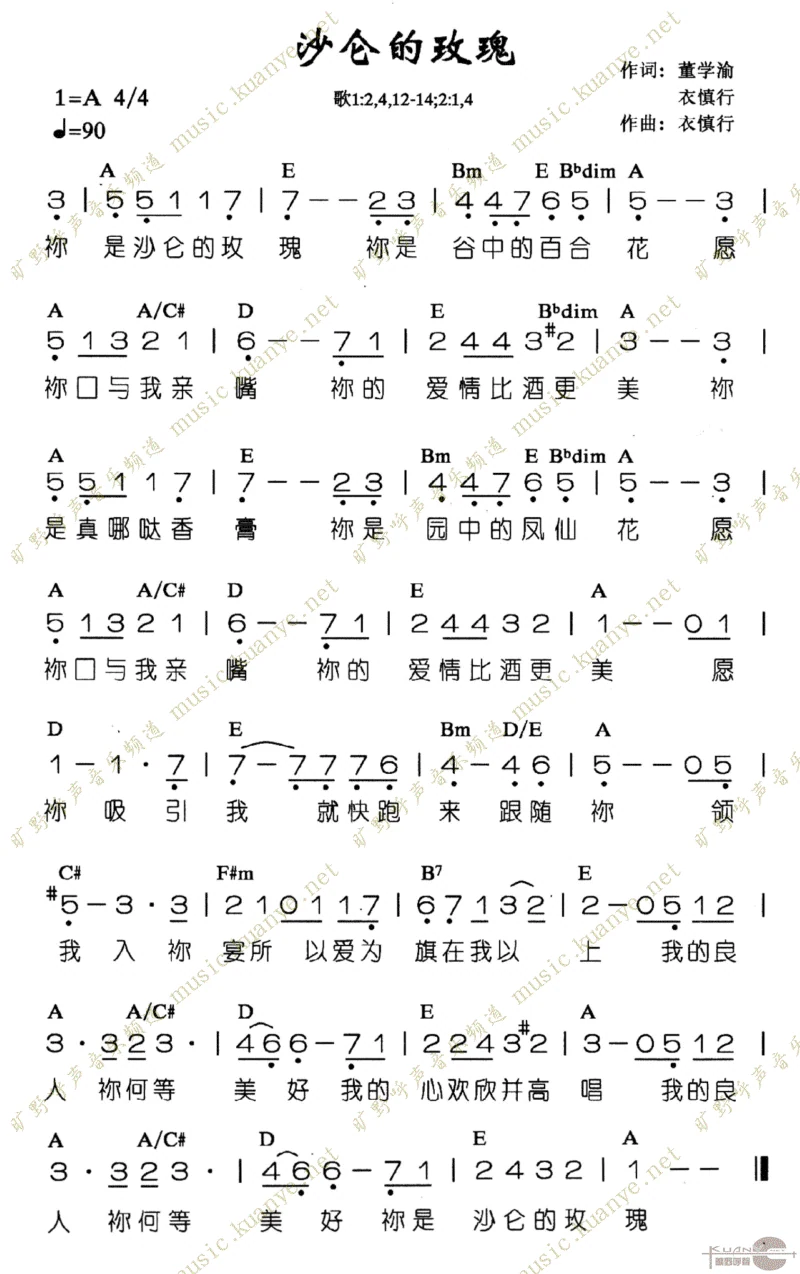 沙仑的玫瑰
1=A 4/4
♩=90
歌1:2,4,12-14;2:1,4
作词：董学渝
衣慎行
作曲：衣慎行
A E Bm E Bᵇdim A
3 | 5 5 1 1 7 | 7 - - 2 3 | 4 4 7 6 5 | 5 - - 3 |
祢 是沙仑的玫 瑰 祢是 谷中的百合 花 愿
A A/C# D E Bᵇdim A
5 1 3 2 1 | 6 - - 7 1 | 2 4 4 3 #2 | 3 - - 3 |
祢口与我亲 嘴 祢的 爱情比酒更 美 祢
A E Bm E Bᵇdim A
5 5 1 1 7 | 7 - - 2 3 | 4 4 7 6 5 | 5 - - 3 |
是真哪哒香 膏 祢是 园中的凤仙 花 愿
A A/C# D E A
5 1 3 2 1 | 6 - - 7 1 | 2 4 4 3 2 | 1 - - 0 1 |
祢口与我亲 嘴 祢的 爱情比酒更 美 愿
D E Bm D/E A
1 - 1 · 7 | 7 - 7 7 7 6 | 4 - 4 6 | 5 - - 0 5 |
祢 吸 引 我 就快跑 来 跟随 祢 领
C# F#m B⁷ E
#5 - 3 · 3 | 2 1 0 1 1 7 | 6 7 1 3 2 | 2 - 0 5 1 2 |
我 入 祢 宴所 以爱为 旗在我以 上 我的良
A A/C# D E A
3 · 3 2 3 · | 4 6 6 - 7 1 | 2 2 4 3 #2 | 3 - 0 5 1 2 |
人 祢何等 美 好 我的 心欢欣并高 唱 我的良
A A/C# D E A
3 · 3 2 3 · | 4 6 6 - 7 1 | 2 4 3 2 | 1 - - ‖
人 祢何等 美 好 祢是 沙仑的玫 瑰
旷野呼声音乐频道 music.kuanye.net
KUANYE
旷野呼声